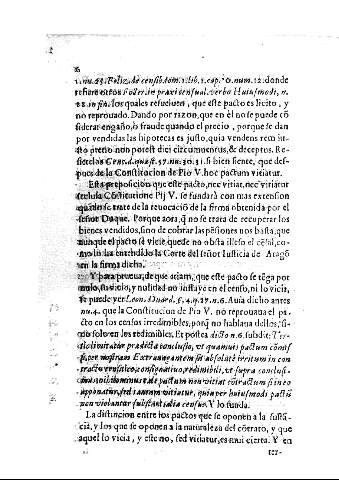 1.nu.43. Feliz. de censib. tom. 1. lib. 1. cap. 10. num. 12. donde
refiere otros Soler. in praxi censual. verbo Huiusmodi, n.
22. in fin. los quales resuelven, que este pacto es licito, y
no reprouado. Dando por razon, que en èl no se puede cõ
siderar engaño, ò fraude quando el precio, porque se dan
por vendidas las hipotecas es justo, quia vendens rem iu-
sto pretio non potest dici circumuentus, & deceptus. Re-
fierelos Cenc. d. quæst. 57. nu. 30. 31. si bien siente, que des-
pues de la Constitucion de Pio V. hoc pactum vitiatur.
Esta proposicion que este pacto, nec vitiat, nec vitiatur
Pij V. se fundarà con mas extension
quãdo se trate de la reuocaciõ de la firma obtenida por el
señor Duque. Porque aora, q̃ no se trata de recuperar los
bienes vendidos, sino de cobrar las pẽsiones nos basta, que
aunque el pacto se vicie quede no obstã illeso el cẽsal, co-
mo lo ha entendido la Corte del señor Iusticia de Aragõ
en la firma dicha.
Y para prueua, de que aciam, que este pacto se tẽga por
nulo, su vicio, y nulidad no influye en el censo, ni lo vicia,
se puede ver Leon. 4. q. 17. n. 6. Auia dicho antes
nu. 4. que la Constitucion de Pio V. no reprouaua el pa-
cto en los censos irredimibles, porq̃ no hablaua dellos, si-
no solo en los redimibles. Et postea dicto n. 6. subdit: Ter-
tio limitatur prædicta conclusio, vt quamuis pactum cõmis-
si, per nostram Extrauagantem sit absolutè irritum in con-
tractu censitico, consignatiuo, redimibili, vt supra conclusi-
mus, nihilominus dictum pactum non vitiat cõtractum si in eo
apponatur, sed tantum vitiatur, quia per huiusmodi pactũ
non violantur substantialia census. Y lo funda.
La distincion entre los pactos que se oponen a la sustã-
cia, y los que se oponen a la naturaleza del cõtrato, y que
aquel lo vicia, y este no, sed vitiatur, es mui cierta. Y en
ter-